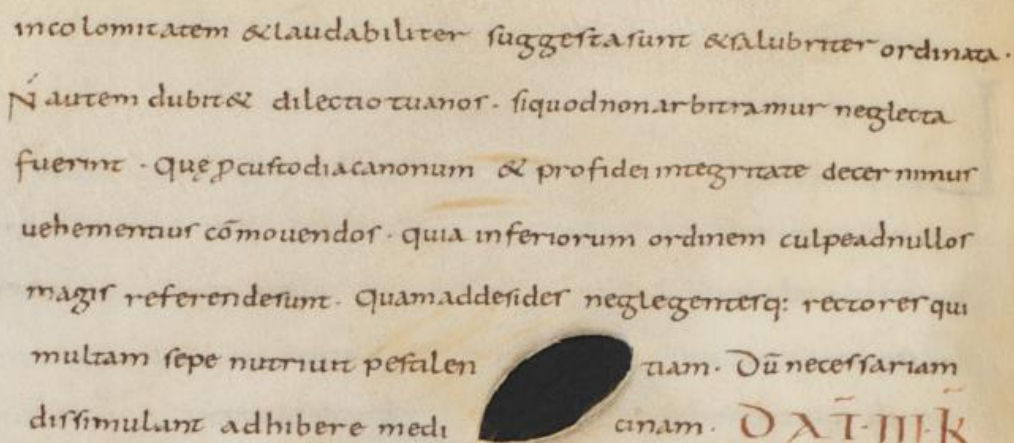 incolomitatem & laudabiliter suggesta sunt & salubriter ordinata·
N̄ autem dubit& dilectio tua nos· si quod non arbitramur neglecta
fuerint· Quę ꝓ custodia canonum & pro fidei integritate decernimus
uehementius cōmouendos· quia inferiorum ordinem culpe ad nullos
magis referende sunt· Quam ad desides neglegentesq: rectores qui
multam sepe nutriunt pestilen tiam· Dū necessariam
dissimulant adhibere medi cinam· DAT̄·III·K̄